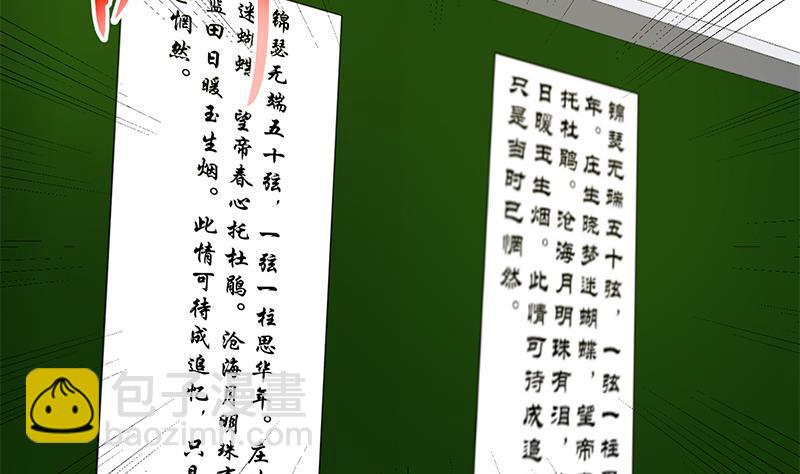 锦瑟无端五十弦，一弦一柱思华年。庄
迷蝴蝶 望帝春心托杜鹃。沧海月明珠有
蓝田日暖玉生烟。此情可待成追忆，只是
惘然。
锦瑟无端五十弦，一弦一柱思
年。庄生晓梦迷蝴蝶，望帝
托杜鹃。沧海月明珠有泪，
日暖玉生烟。此情可待成追
只是当时已惘然。
包子漫畫
baozimh.com